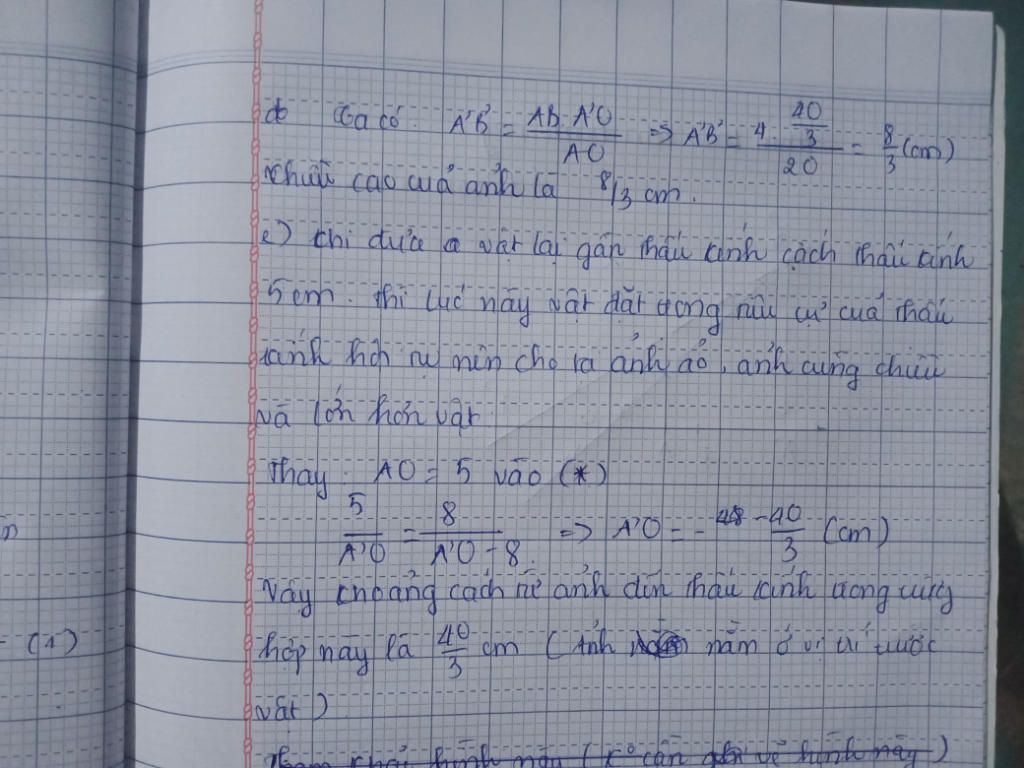 d) Ta có: A'B' = AB. A'O / AO => A'B' = 4. 40/3 / 20 = 8/3 (cm)
Chiều cao của ảnh là 8/3 cm.
e) Khi đưa vật lại gần thấu kính cách thấu kính
5cm. thì lúc này vật đặt trong tiêu cự của thấu
kính hội tụ nên cho ra ảnh ảo, ảnh cùng chiều
và lớn hơn vật
Thay AO = 5 vào (*)
5/A'O = 8/A'O - 8 => A'O = - 40/3 (cm)
Vậy khoảng cách từ ảnh đến thấu kính trong trường
hợp này là 40/3 cm (Ảnh nằm ở vị trí trước
vật)
= (1)